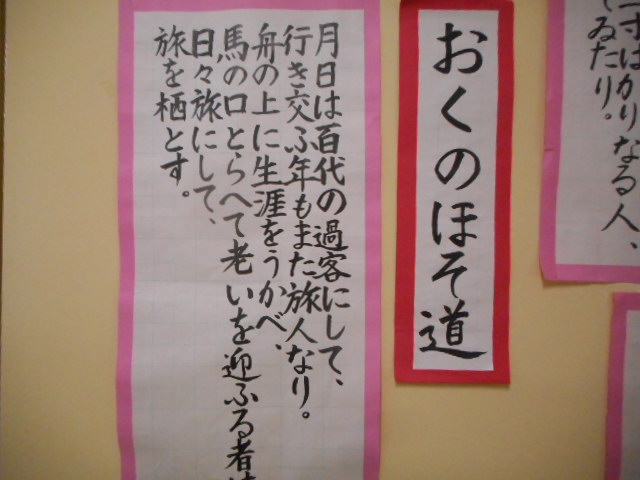 一寸ばかりなる人、
てゐたり。
おくのほそ道
月日は百代の過客にして、
行き交ふ年もまた旅人なり。
舟の上に生涯をうかべ、
馬の口とらへて老いを迎ふる者は
日々旅にして、
旅を栖とす。